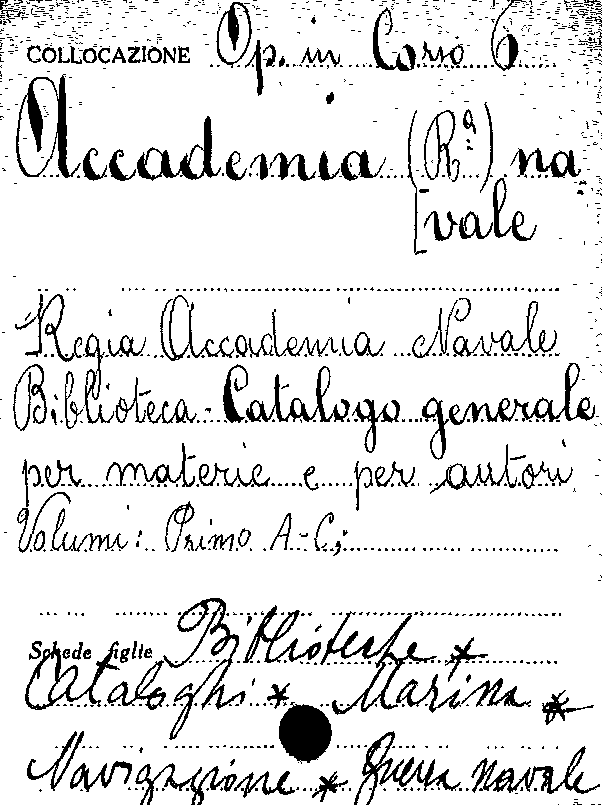 COLLOCAZIONE Op. in Corso 6
Accademia (Rª) na
[vale
Regia Accademia Navale
Biblioteca - Catalogo generale
per materie e per autori
Volumi: Primo A-C;
Schede figlie Biblioteche *
Cataloghi * Marina *
Navigazione * Guerra navale